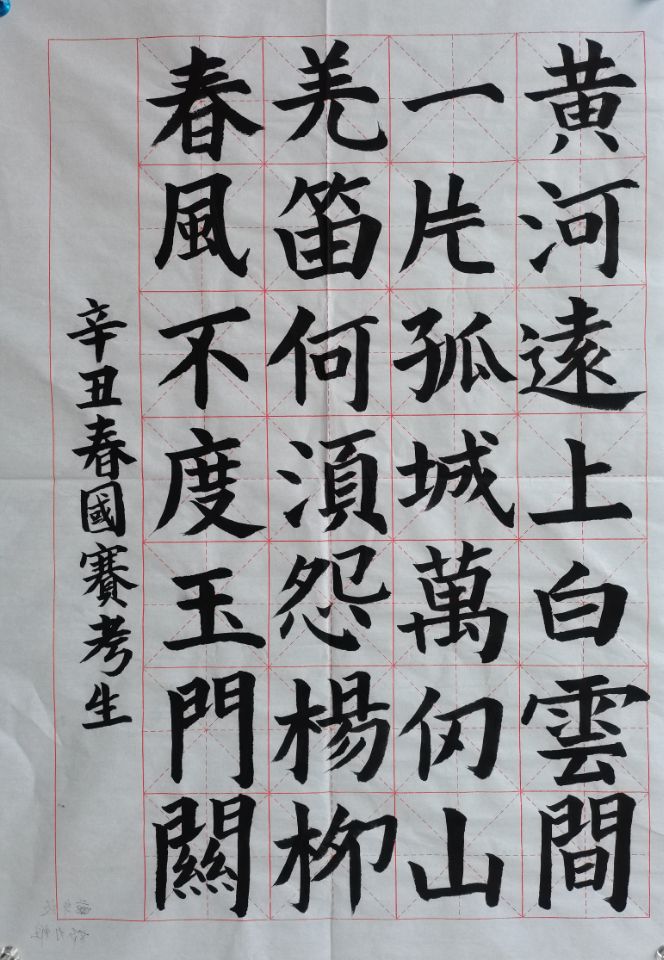 黄河遠上白雲間
一片孤城萬仞山
羌笛何湏怨楊柳
春風不度玉門關
辛丑春國賽考生